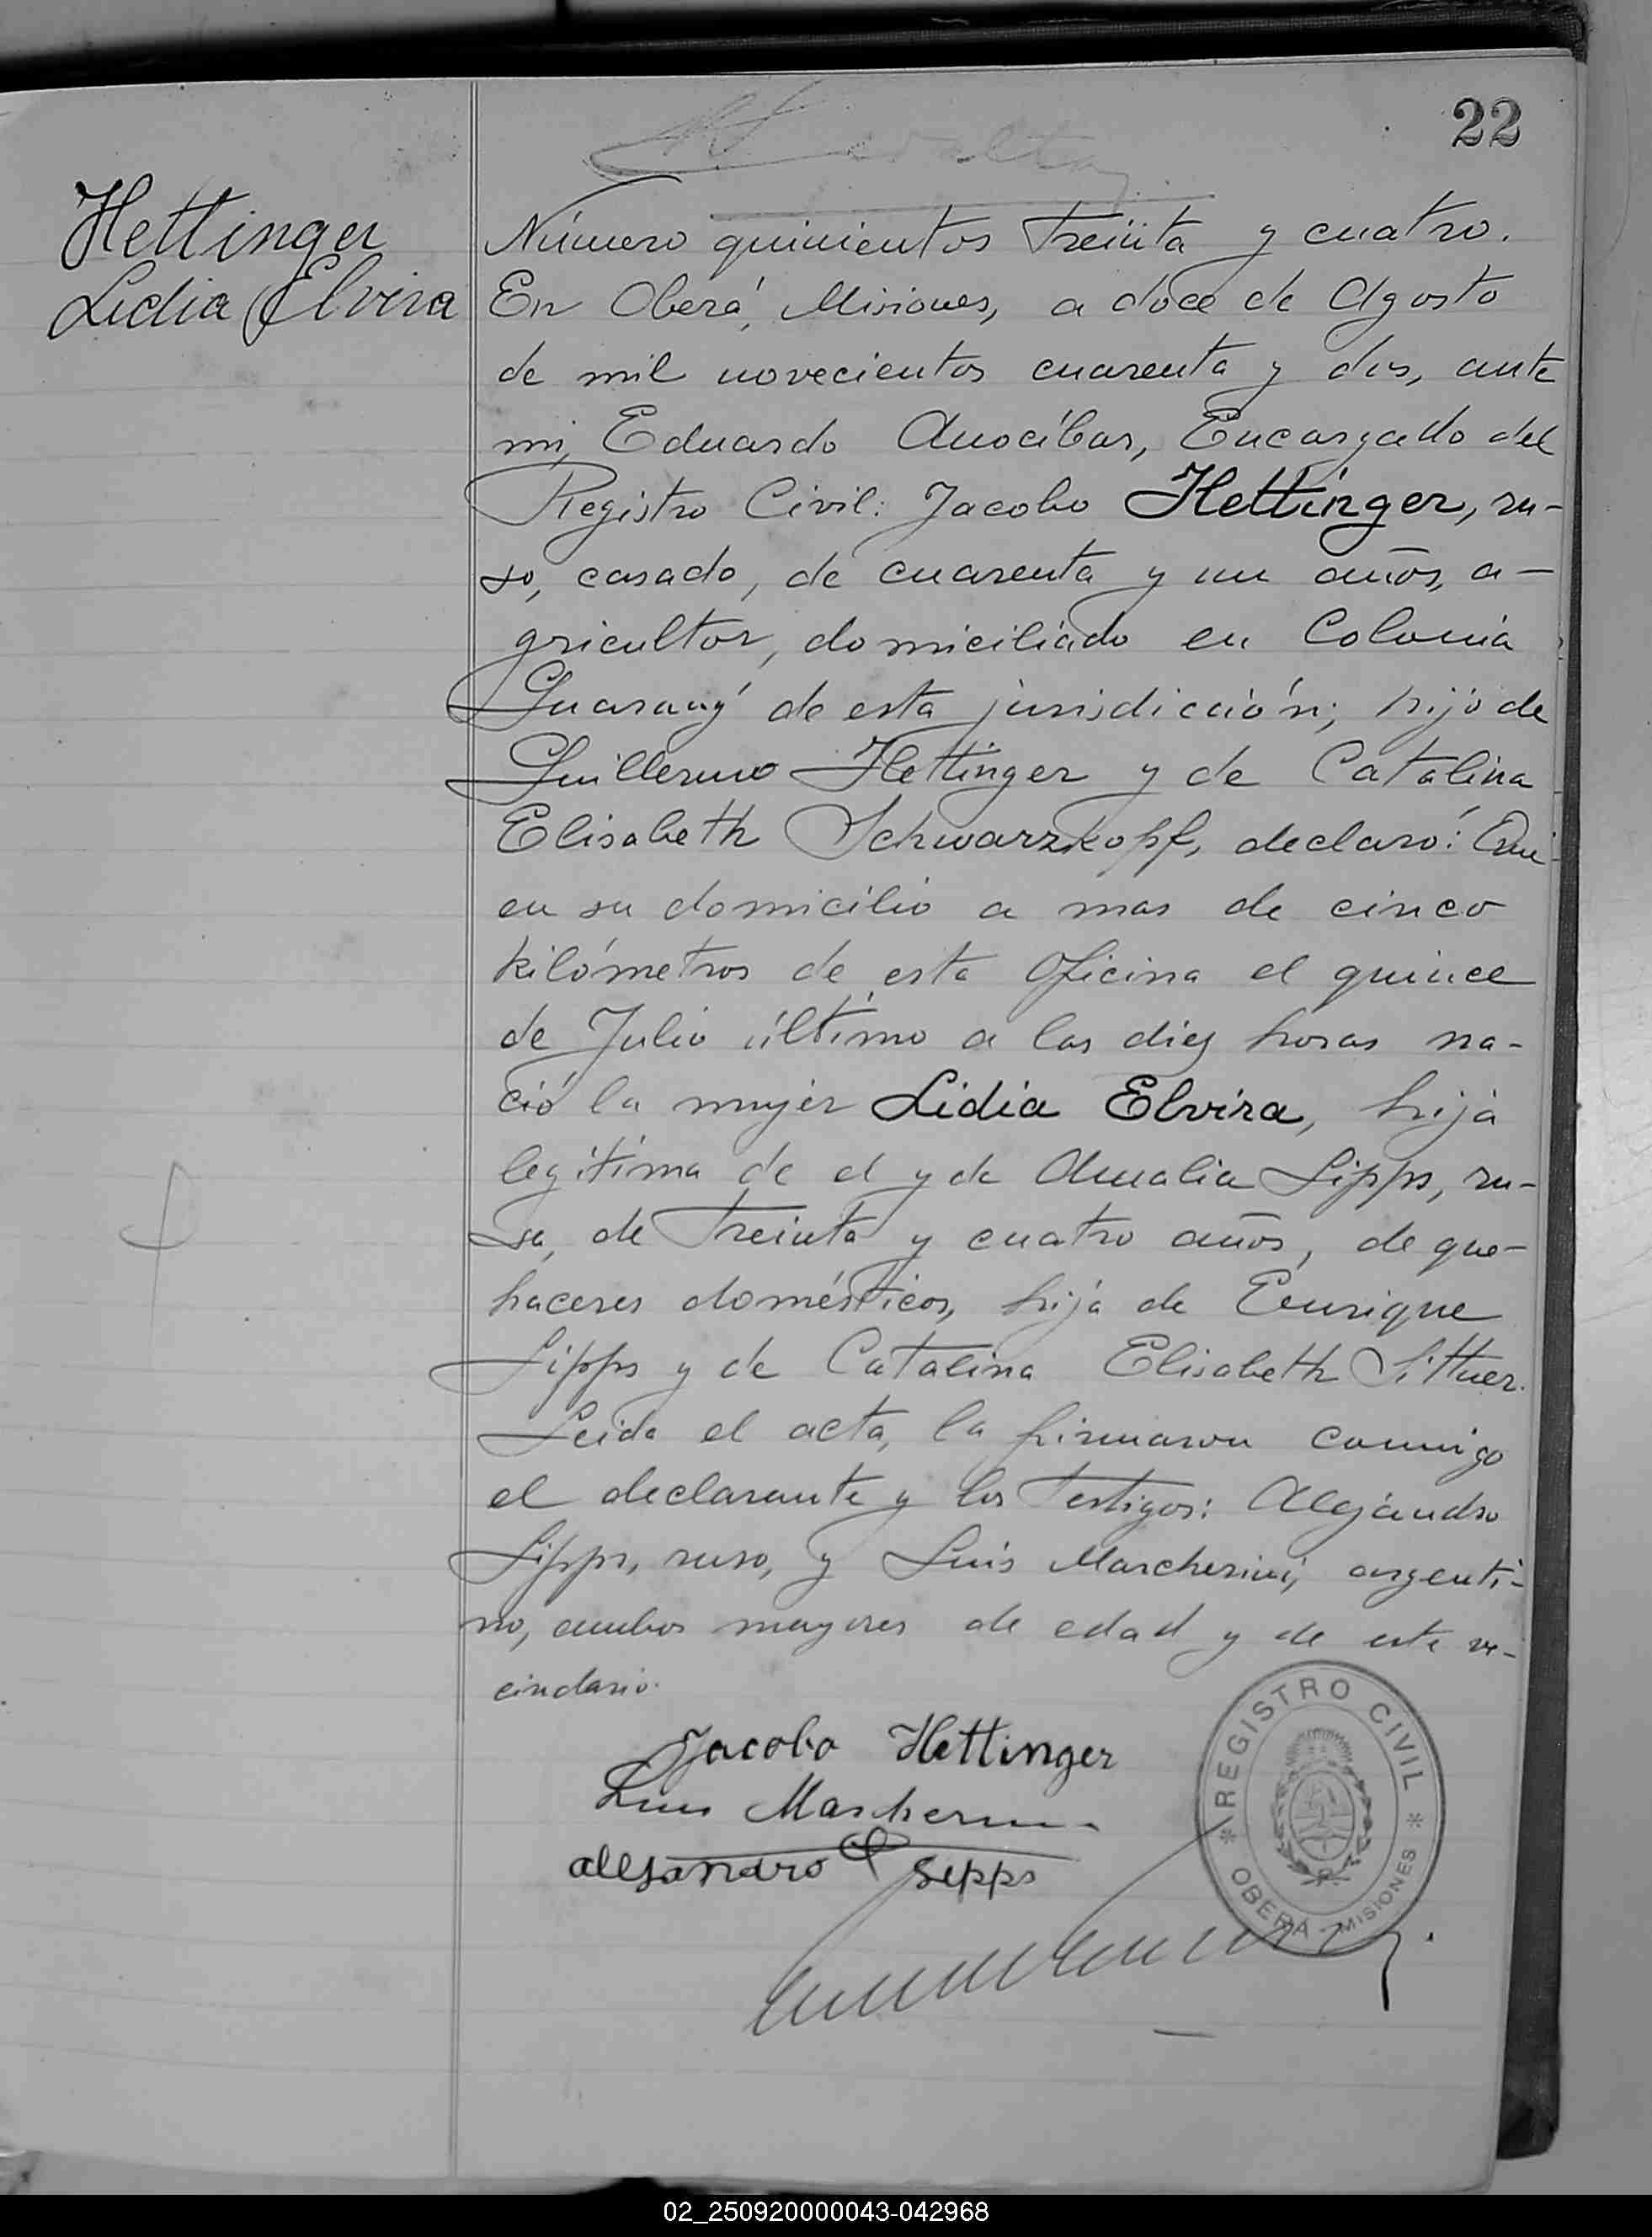 22
Hettinger
Lidia Elvira
Número quinientos treinta y cuatro.
En Oberá, Misiones, a doce de Agosto
de mil novecientos cuarenta y dos, ante
mi, Eduardo Anocíbar, Encargado del
Registro Civil: Jacobo Hettinger, ru-
so, casado, de cuarenta y un años, a-
gricultor, domiciliado en Colonia
Guarany de esta jurisdicción; hijo de
Guillermo Hettinger y de Catalina
Elisabeth Schwarzkopf, declaró: Que
en su domicilio a mas de cinco
kilómetros de esta Oficina el quince
de Julio último a las diez horas na-
ció la mujer Lidia Elvira, hija
legítima de el y de Amalia Sipps, ru-
sa, de treinta y cuatro años, de que-
haceres domésticos, hija de Enrique
Sipps y de Catalina Elisabeth Sittner.
Leida el acta, la firmaron conmigo
el declarante y los testigos: Alejandro
Sipps, ruso, y Luis Marcherini, argenti-
no, ambos mayores de edad y de este ve-
cindario.
Jacobo Hettinger
Luis
alejandro Sepps
REGISTRO CIVIL
OBERÁ - MISIONES
02_250920000043-042968